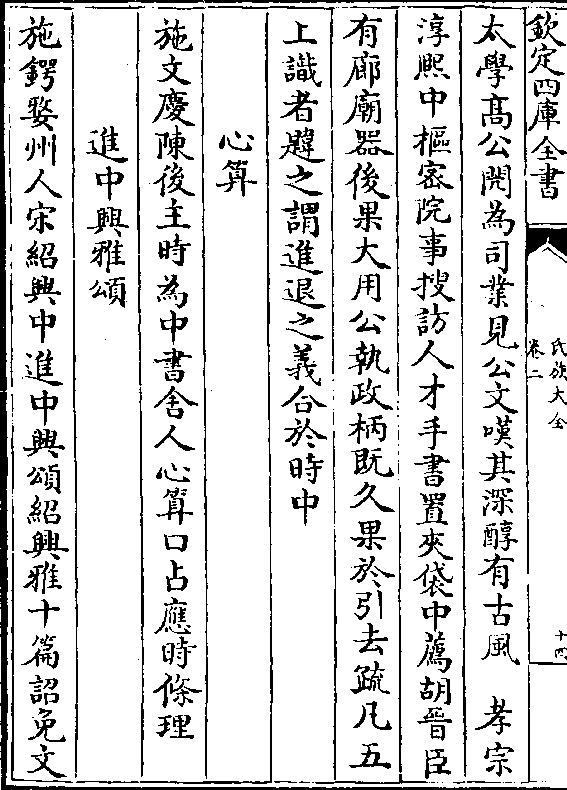 欽定四庫全書
氏族大全
卷二
十四
太學髙公閌為司業見公文嘆其深醇有古風　孝宗
淳熙中樞宻院事搜訪人才手書置夾袋中薦胡晉臣
有廊廟器後果大用公執政柄既久果於引去疏凡五
上識者韙之謂進退之義合於時中
心算
施文慶陳後主時為中書舍人心算口占應時條理
進中興雅頌
施鍔婺州人宋紹興中進中興頌紹興雅十篇詔免文